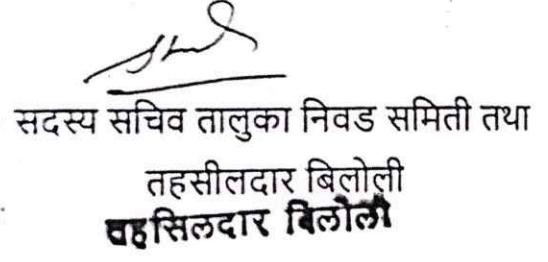 सदस्य सचिव तालुका निवड समिती तथा
तहसीलदार बिलोली
तहसिलदार बिलोली